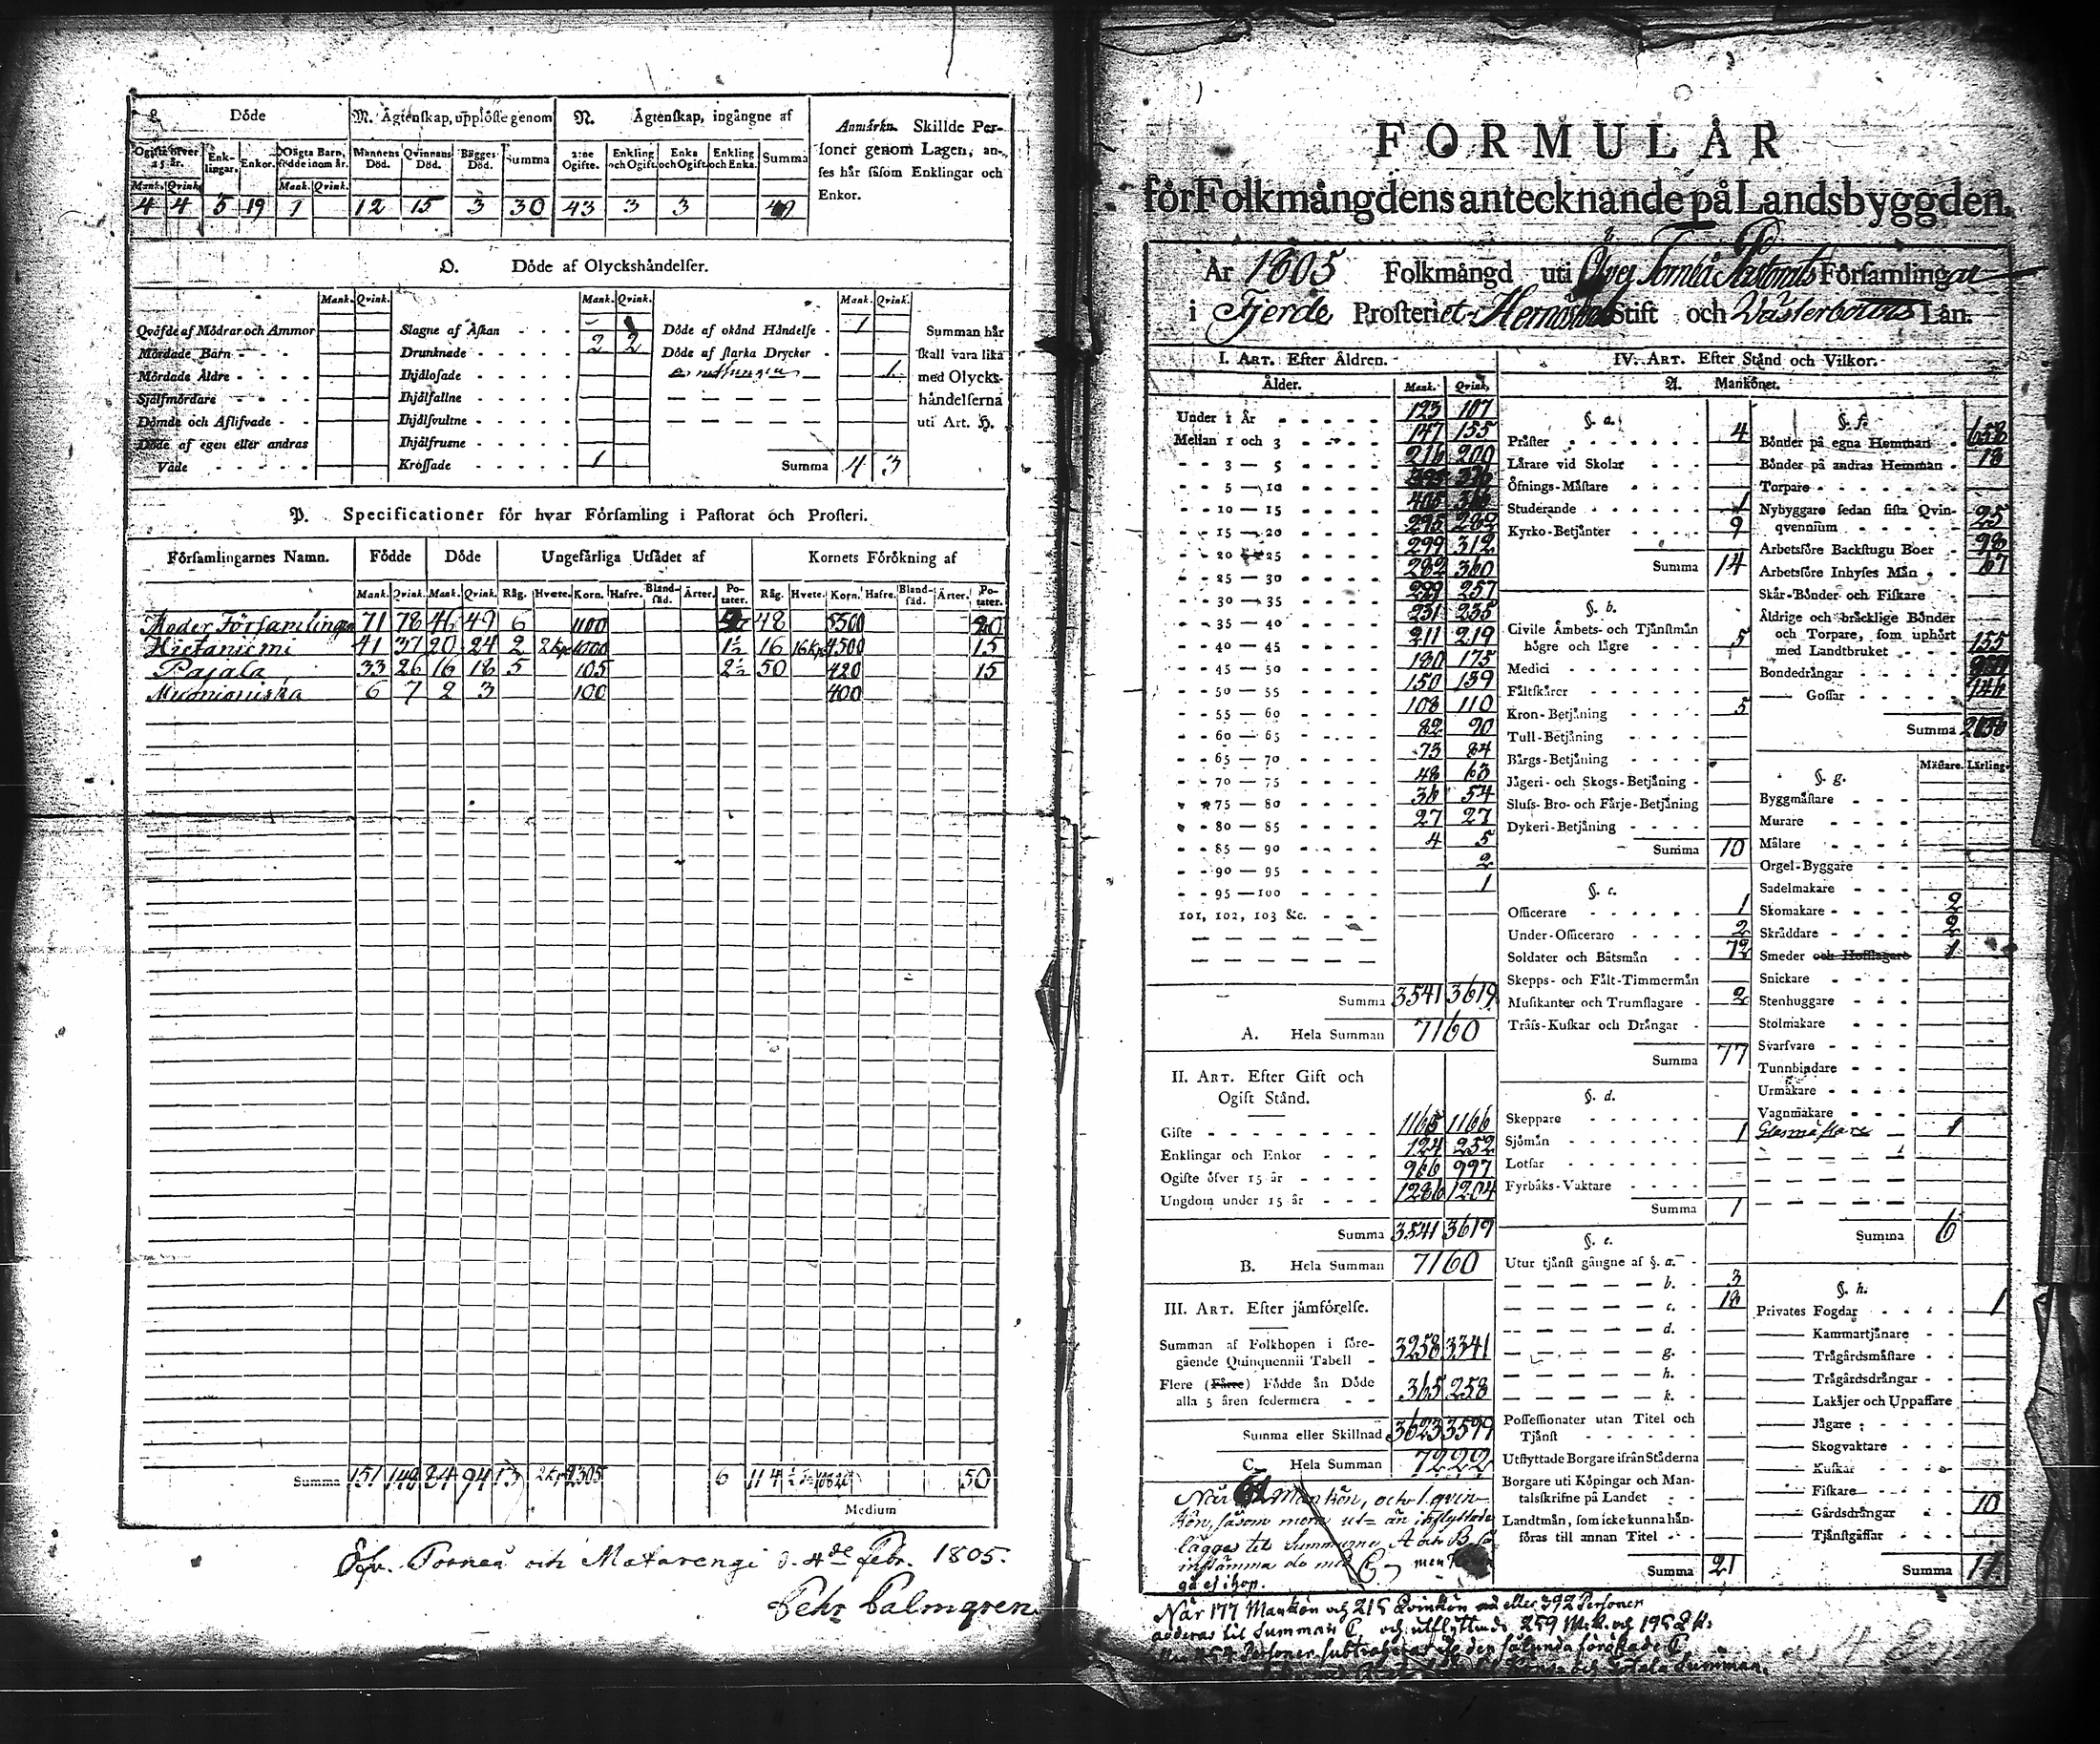 L. Döde
M. Ägtenskap, upplöste genom
N. Ägtenskap, ingångne af
Anmärkn. Skillde Personer genom Lagen, an-
ses här såsom Enklingar och
Enkor.
Ogifte öfver 25 år. Enklingar. Enkor. Oägta Barn, födde inom år. Mannens Död. Qvinnans Död. Bägges Död. Summa 2:ne Ogifte. Enkling och Ogift. Enka och Ogift. Enkling och Enka. Summa
Mank. Qvink. Mank. Qvink.
4 4 5 19 1 12 15 3 30 43 3 3 49
O. Döde af Olyckshändelser.
Mank. Qvink. Mank. Qvink. Mank. Qvink.
Qväfde af Mödrar och Ammor
Mördade Barn
Mördade Äldre
Sjelfmördare
Dömde och Aflifvade
Döde af egen eller andras
Våde
Slagne af Åskan
Drunknade 2 2
Ihjälosade
Ihjälfallne
Ihjälsvultne
Ihjälfrusne
Krossade 1
Döde af okänd Händelse 1
Döde af starka Drycker
1
Summa 4 3
Summan här
skall vara lika
med Olycks-
händelserna
uti Art. H.
P. Specificationer för hvar Församling i Pastorat och Prosteri.
Församlingarnes Namn. Födde Döde Ungefärliga Utsädet af Kornets Förökning af
Mank. Qvink. Mank. Qvink. Råg. Hvete. Korn. Hafre. Blandsäd. Ärter. Potater. Råg. Hvete. Korn. Hafre. Blandsäd. Ärter. Potater.
Moder Församlingen 71 78 46 49 6 1100 48 5500 20
Hietaniemi 41 37 20 24 2 2 kp 1000 1½ 16 16 kp 4500 15
Pajala 33 26 16 18 5 105 2½ 50 420 15
Muonioniska 6 7 2 3 100 400
Summa 151 148 84 94 13 2 kp 2305 6 114 50
Medium
Öfv. Torneå och Matarengi d. 4de Febr. 1805.
Pehr Palmgren
FORMULÄR
för Folkmängdens antecknande på Landsbyggden.
År 1805 Folkmängd uti Öfver Torneå Pastorats Församlingar
i Fjerde Prosteriet Hernösands Stift och Västerbottns Län.
I. Art. Efter Åldren.
Ålder. Mank. Qvink.
Under 1 År 123 107
Mellan 1 och 3 147 155
3 — 5 216 200
5 — 10
10 — 15
15 — 20
20 — 25 299 312
25 — 30 282 300
30 — 35 257
35 — 40 231 235
40 — 45 211 219
45 — 50 180 175
50 — 55 150 139
55 — 60 108 110
60 — 65 82 90
65 — 70 73 84
70 — 75 48 63
75 — 80 36 54
80 — 85 27 27
85 — 90 4 5
90 — 95 2
95 — 100 1
101, 102, 103 &c.
Summa 3541 3619
A. Hela Summan 7160
II. Art. Efter Gift och
Ogift Stånd.
Gifte 1165 1166
Enklingar och Enkor 124 252
Ogifte öfver 15 år 966 997
Ungdom under 15 år 1286 1204
Summa 3541 3619
B. Hela Summan 7160
III. Art. Efter jämförelse.
Summan af Folkhopen i före-
gående Quinquennii Tabell 3258 3341
Flere (Färre) Födde än Döde
alla 5 åren sedermera 365 258
Summa eller Skillnad 3623 3599
C. Hela Summan 7222
När Mankön, och 1. qvin-
kön, såsom mera ut- än inflyttade
lägges til Summorne A och B så
instämma de med C, men
gå ej ihop.
När 177 Mankön och 215 Qvinkön eller 392 Personer
adderas til Summan C, och utflyttande 259 M.k. och 195 Q.k.
454 Personer subtraheras
IV. Art. Efter Stånd och Vilkor.
A. Mankönet.
§. a.
Präster 4
Lärare vid Skolar
Öfnings-Mästare
Studerande 1
Kyrko-Betjänter 9
Summa 14
§. b.
Civile Ämbets- och Tjänstmän
högre och lägre 5
Medici
Fältskärer
Kron-Betjäning 5
Tull-Betjäning
Bärgs-Betjäning
Jägeri- och Skogs-Betjäning
Sluss- Bro- och Färje-Betjäning
Dykeri-Betjäning
Summa 10
§. c.
Officerare 1
Under-Officerare 2
Soldater och Båtsmän 72
Skepps- och Fält-Timmermän
Musikanter och Trumslagare 2
Träss-Kuskar och Drängar
Summa 77
§. d.
Skeppare
Sjömän 1
Lotsar
Fyrbåks-Vaktare
Summa 1
§. e.
Utur tjänst gångne af §. a.
b. 3
c. 18
d.
g.
h.
k.
Possessionater utan Titel och
Tjänst
Utflyttade Borgare ifrån Städerna
Borgare uti Köpingar och Man-
talsskrifne på Landet
Landtmän, som icke kunna hän-
föras till annan Titel
Summa 21
§. f.
Bönder på egna Hemman 658
Bönder på andras Hemman 18
Torpare
Nybyggare sedan sista Qvin-
qvennium 25
Arbetsföre Backstugu Boer 98
Arbetsföre Inhyses Män 67
Skär-Bönder och Fiskare
Äldrige och bräcklige Bönder
och Torpare, som uphört
med Landtbruket 155
Bondedrängar
Gossar 146
Summa
§. g. Mästare. Lärling.
Byggmästare
Murare
Målare
Orgel-Byggare
Sadelmakare
Skomakare 2
Skräddare 2
Smeder och Hofslagare 1
Snickare
Stenhuggare
Stolmakare
Svarfvare
Tunnbindare
Urmakare
Vagnmakare
Glasmästare 1
Summa 6
§. h.
Privates Fogdar 1
Kammartjänare
Trägårdsmästare
Trägårdsdrängar
Lakäjer och Uppassare
Jägare
Skogvaktare
Kuskar
Fiskare
Gårdsdrängar 10
Tjänstgåssar
Summa 11